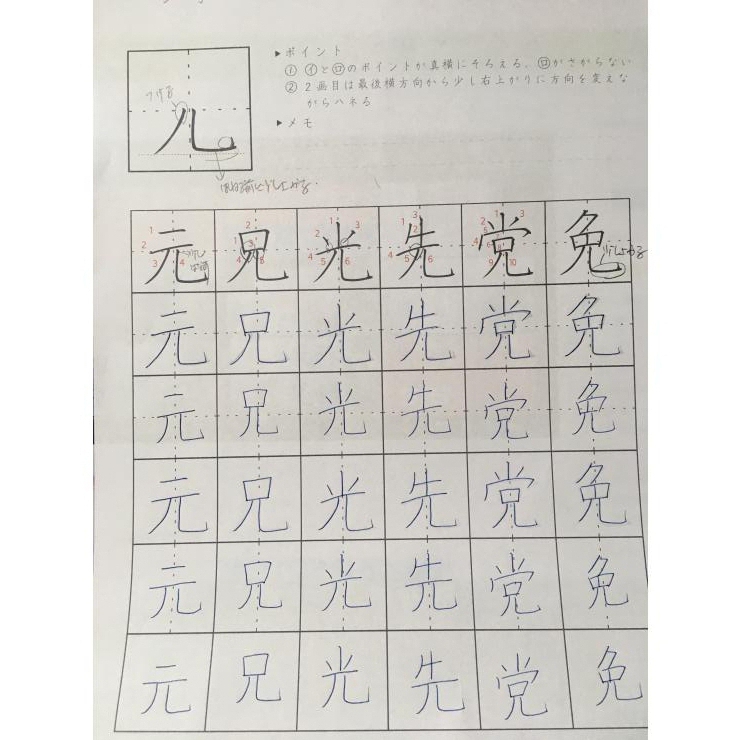 ポイント
① ㋑と㋺のポイントが真横にそろえる、㋺がさがらない
② 2画目は最後横方向から少し右上がりに方向を変えな
がらハネる
メモ
儿
元 兄 光 先 党 免
元 兄 光 先 党 免
元 兄 光 先 党 免
元 兄 光 先 党 免
元 兄 光 先 党 免
元 兄 光 先 党 免